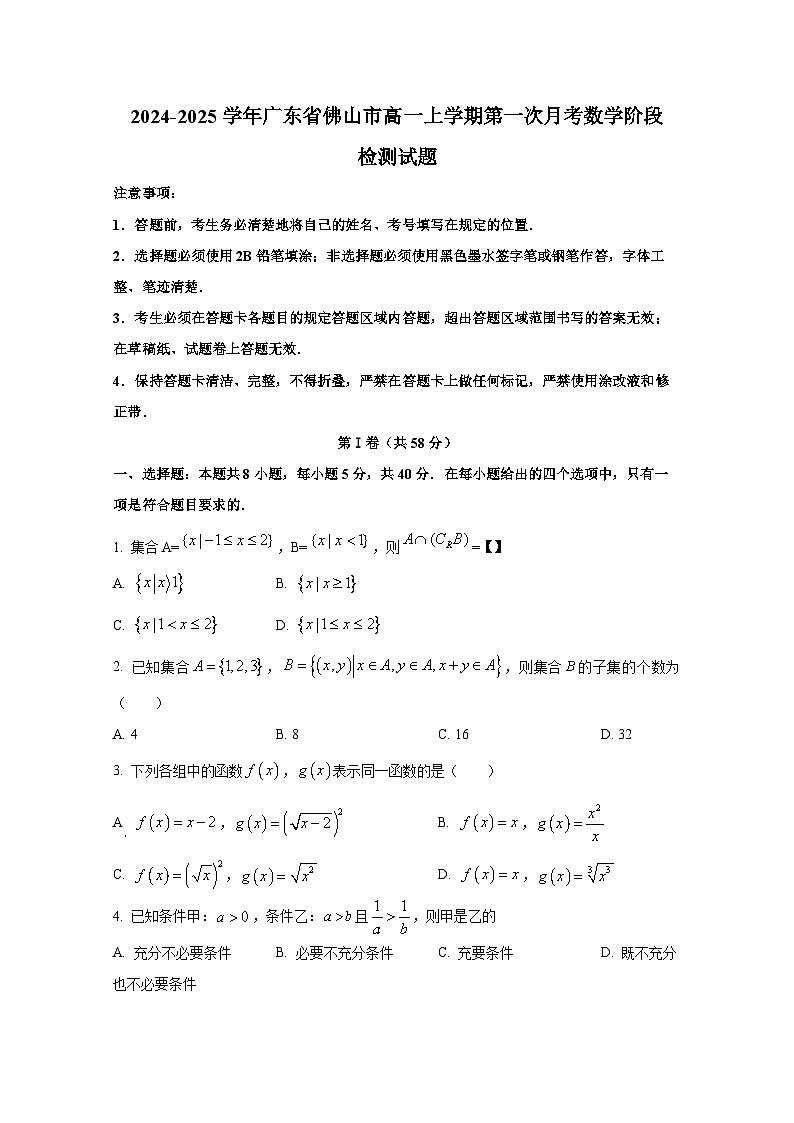 2024-2025 学年广东省佛山市高一上学期第一次月考数学阶段
检测试题
注意事项：
1．答题前，考生务必清楚地将自己的姓名、考号填写在规定的位置．
2．选择题必须使用 2B 铅笔填涂；非选择题必须使用黑色墨水签字笔或钢笔作答，字体工
整、笔迹清楚．
3．考生必须在答题卡各题目的规定答题区域内答题，超出答题区域范围书写的答案无效；
在草稿纸、试题卷上答题无效．
4．保持答题卡清洁、完整，不得折叠，严禁在答题卡上做任何标记，严禁使用涂改液和修
正带．
第 I 卷（共 58 分）
一、选择题：本题共 8 小题，每小题 5 分，共 40 分．在每小题给出的四个选项中，只有一
项是符合题目要求的．
1. 集合 A={x|−1≤x≤2}，B={x|x<1}，则 A∩(C_R B)=【】
A. {x|x〉1} B. {x|x≥1}
C. {x|1<x≤2} D. {x|1≤x≤2}
2. 已知集合 A={1,2,3}，B={(x,y)|x∈A,y∈A,x+y∈A}，则集合 B 的子集的个数为
（ ）
A. 4 B. 8 C. 16 D. 32
3. 下列各组中的函数 f(x)，g(x) 表示同一函数的是（ ）
A. f(x)=x−2，g(x)=(√(x−2))² B. f(x)=x，g(x)=x²/x
C. f(x)=(√x)²，g(x)=√(x²) D. f(x)=x，g(x)=∛(x³)
4. 已知条件甲：a>0，条件乙：a>b 且 1/a>1/b，则甲是乙的
A. 充分不必要条件 B. 必要不充分条件 C. 充要条件 D. 既不充分
也不必要条件